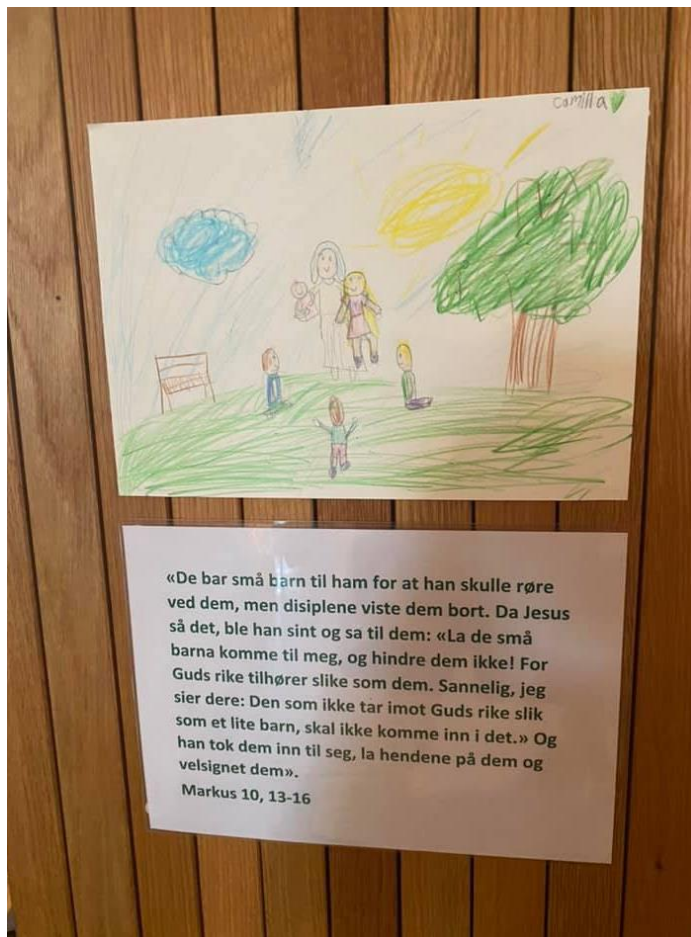 Camilla
«De bar små barn til ham for at han skulle røre
ved dem, men disiplene viste dem bort. Da Jesus
så det, ble han sint og sa til dem: «La de små
barna komme til meg, og hindre dem ikke! For
Guds rike tilhører slike som dem. Sannelig, jeg
sier dere: Den som ikke tar imot Guds rike slik
som et lite barn, skal ikke komme inn i det.» Og
han tok dem inn til seg, la hendene på dem og
velsignet dem».
Markus 10, 13-16